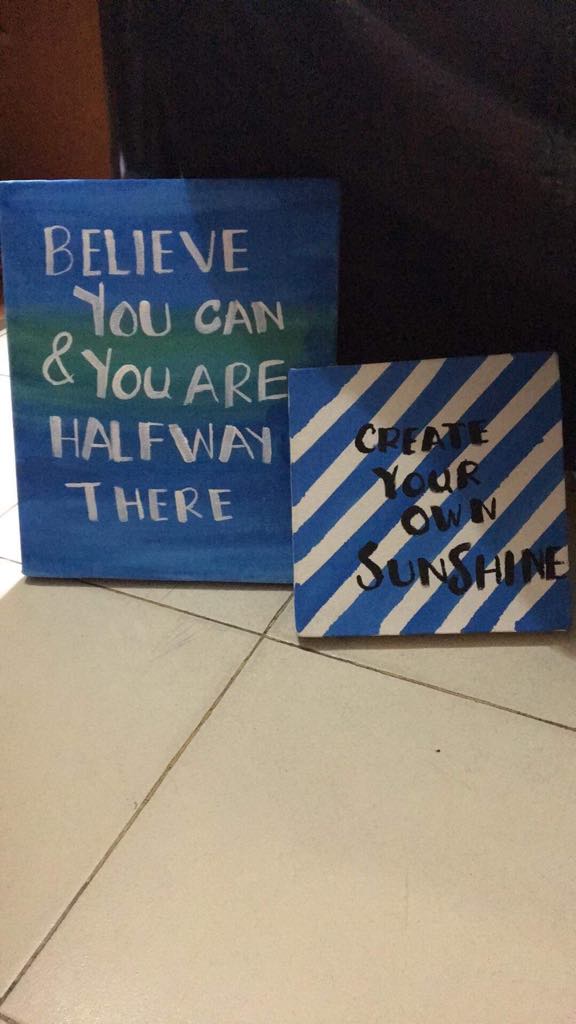 BELIEVE
YOU CAN
& YOU ARE
HALFWAY
THERE
CREATE
YOUR
OWN
SUNSHINE